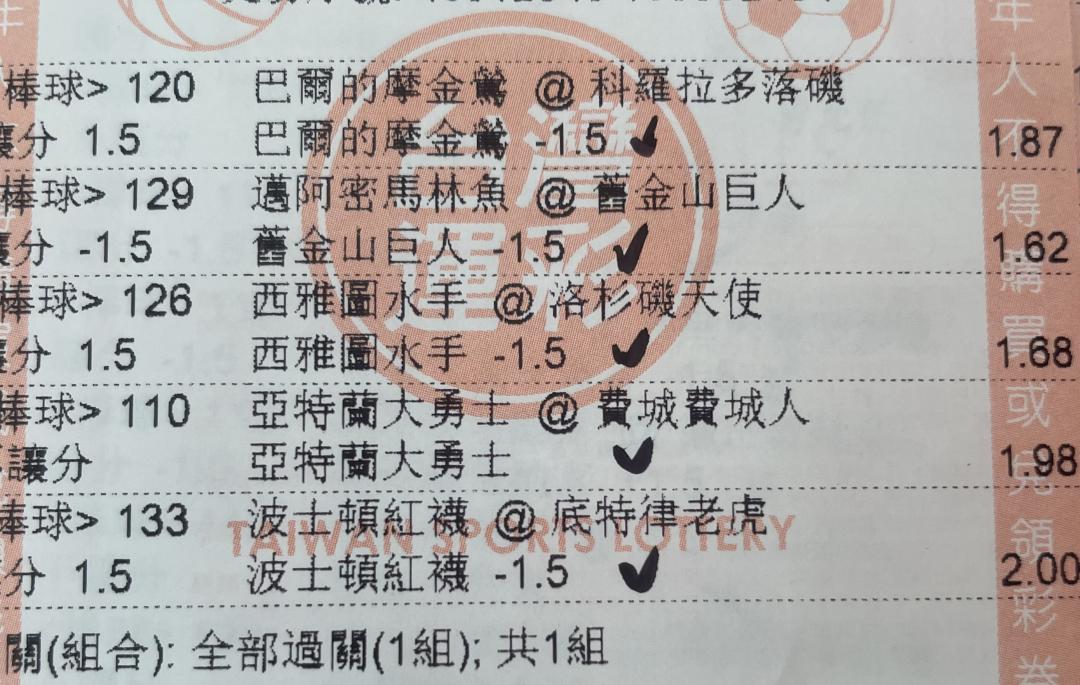 棒球> 120 巴爾的摩金鶯 @ 科羅拉多落磯
讓分 1.5 巴爾的摩金鶯 -1.5 1.87
棒球> 129 邁阿密馬林魚 @ 舊金山巨人
讓分 -1.5 舊金山巨人 -1.5 1.62
棒球> 126 西雅圖水手 @ 洛杉磯天使
讓分 1.5 西雅圖水手 -1.5 1.68
棒球> 110 亞特蘭大勇士 @ 費城費城人
讓分 亞特蘭大勇士 1.98
棒球> 133 波士頓紅襪 @ 底特律老虎
分 1.5 波士頓紅襪 -1.5 2.00
關(組合): 全部過關(1組); 共1組
台灣
運彩
TAIWAN SPORTS LOTTERY
年人不得購買或兌領彩券